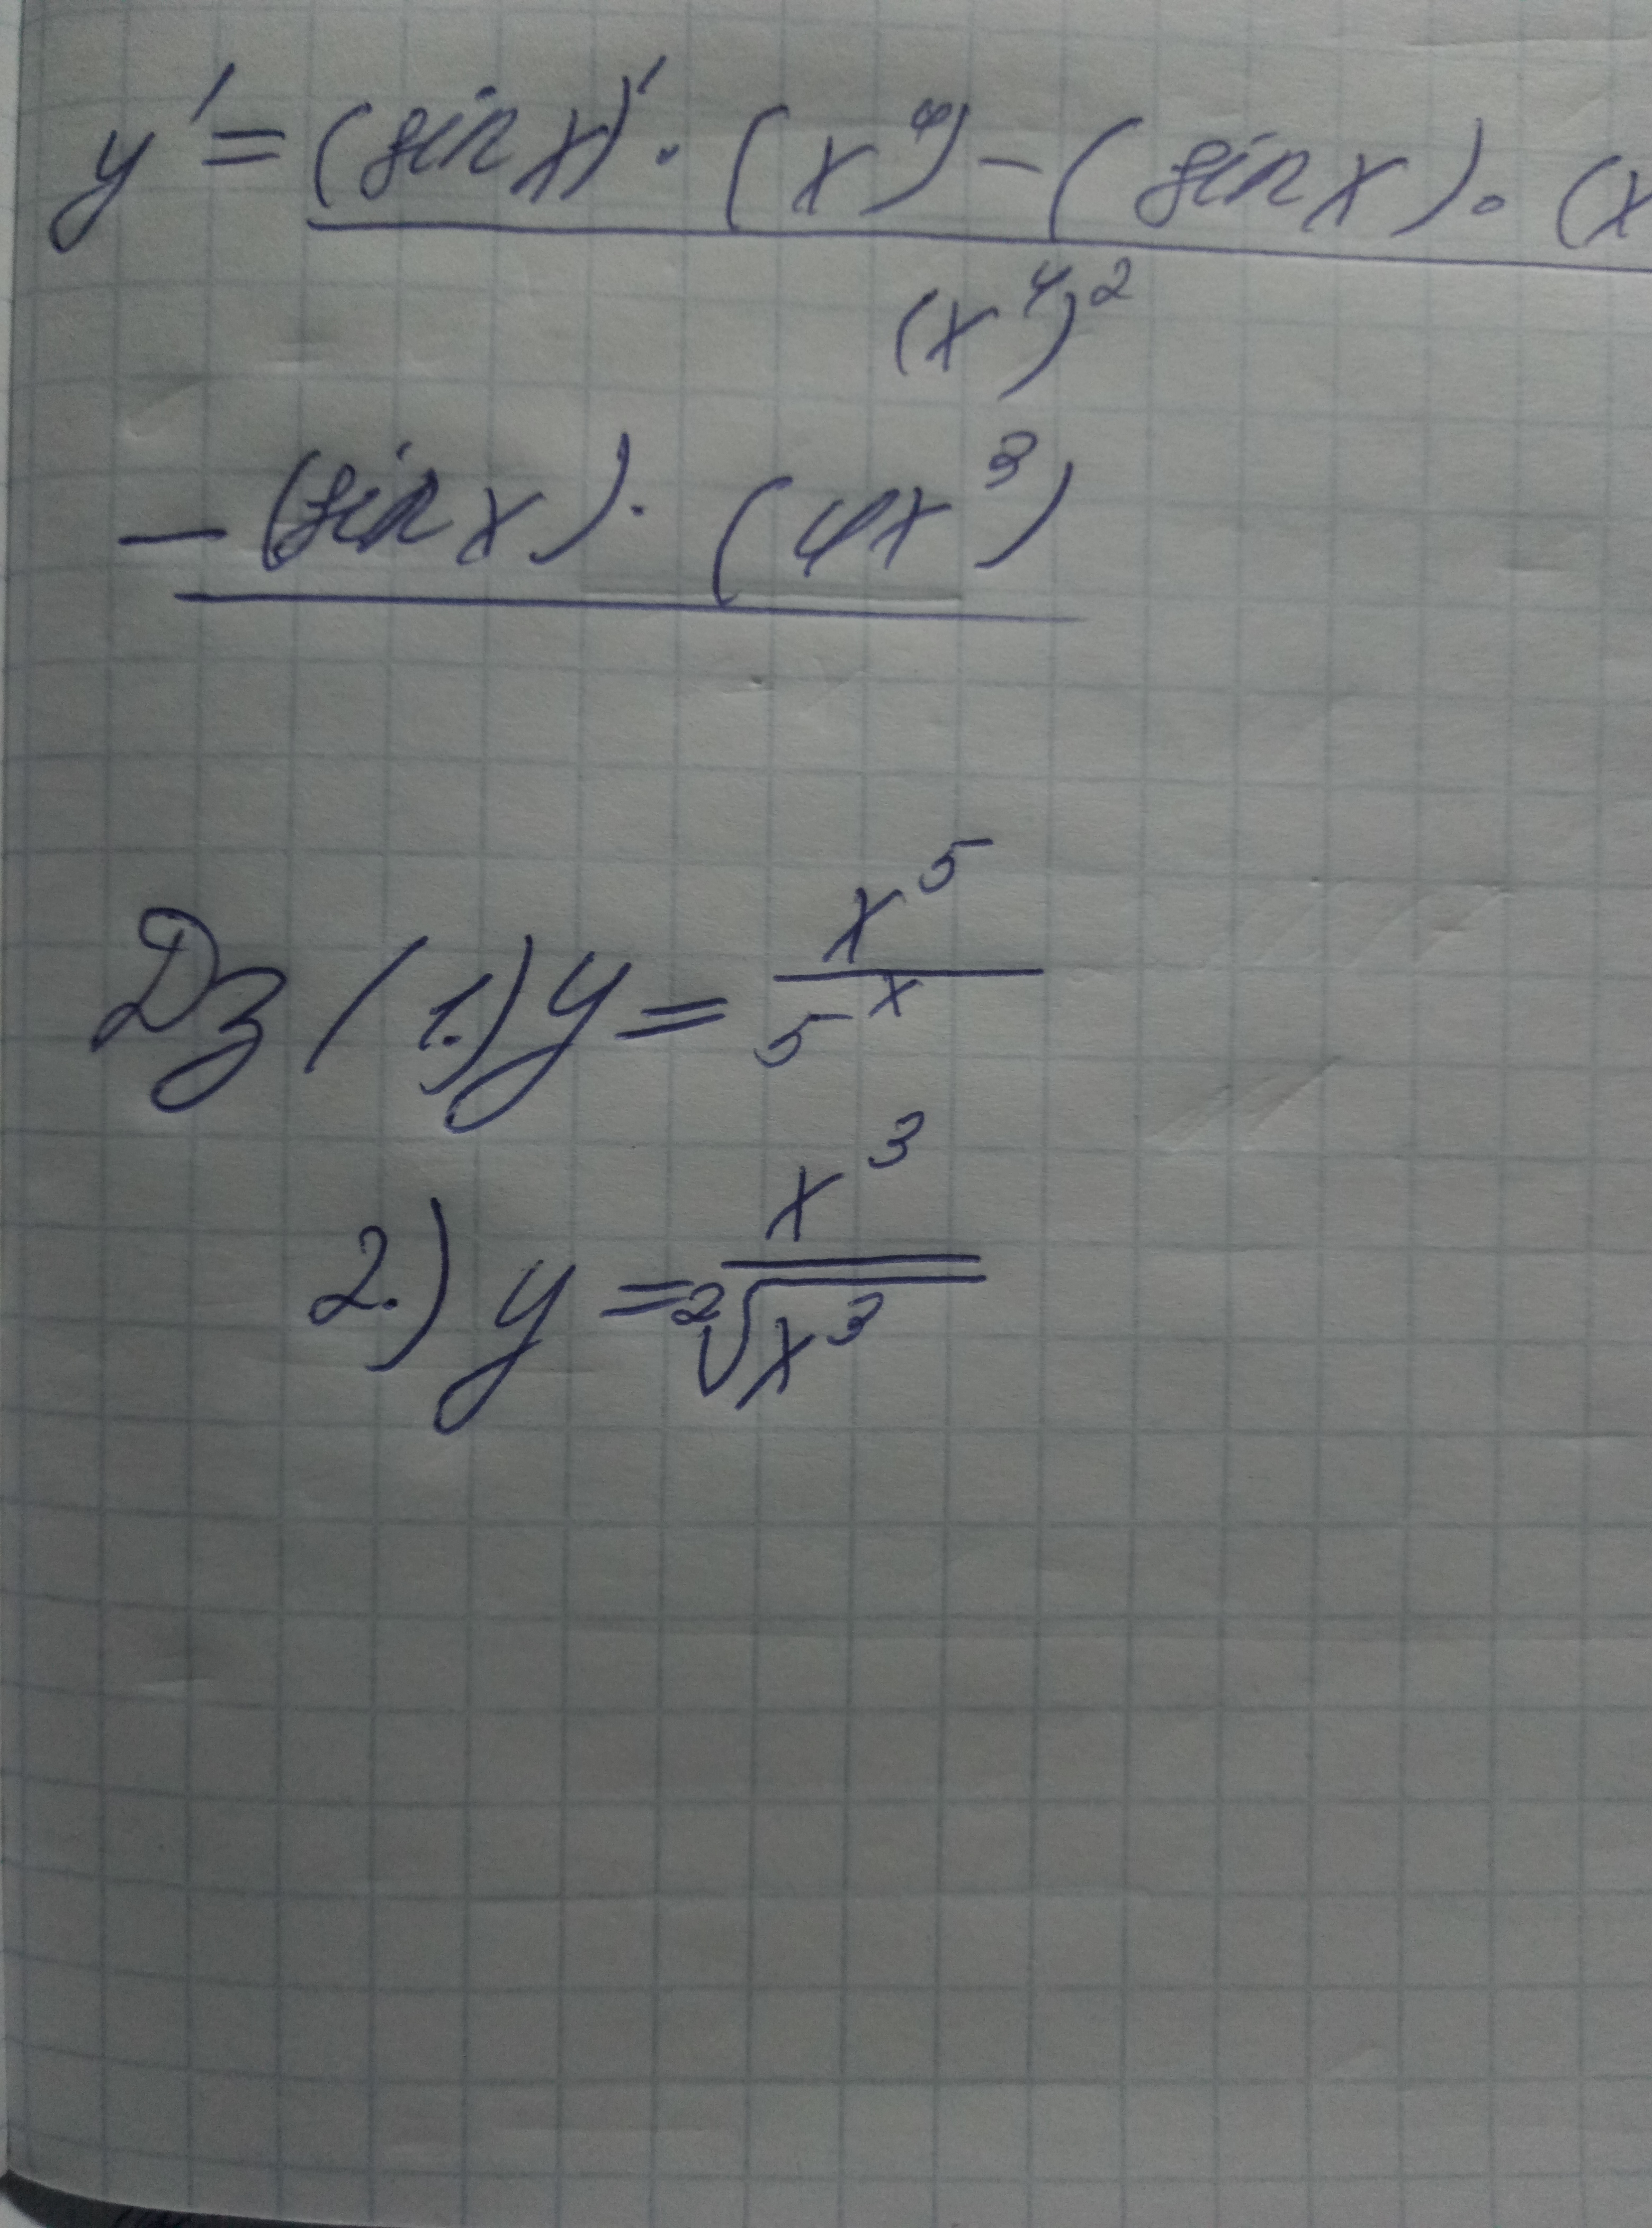 y' = (sin x)' · (x⁴) − (sin x) · (x
(x⁴)²
− (sin x) · (4x³)
Дз (1.) y = x⁵ / 5ˣ
2.) y = x³ / ²√x³